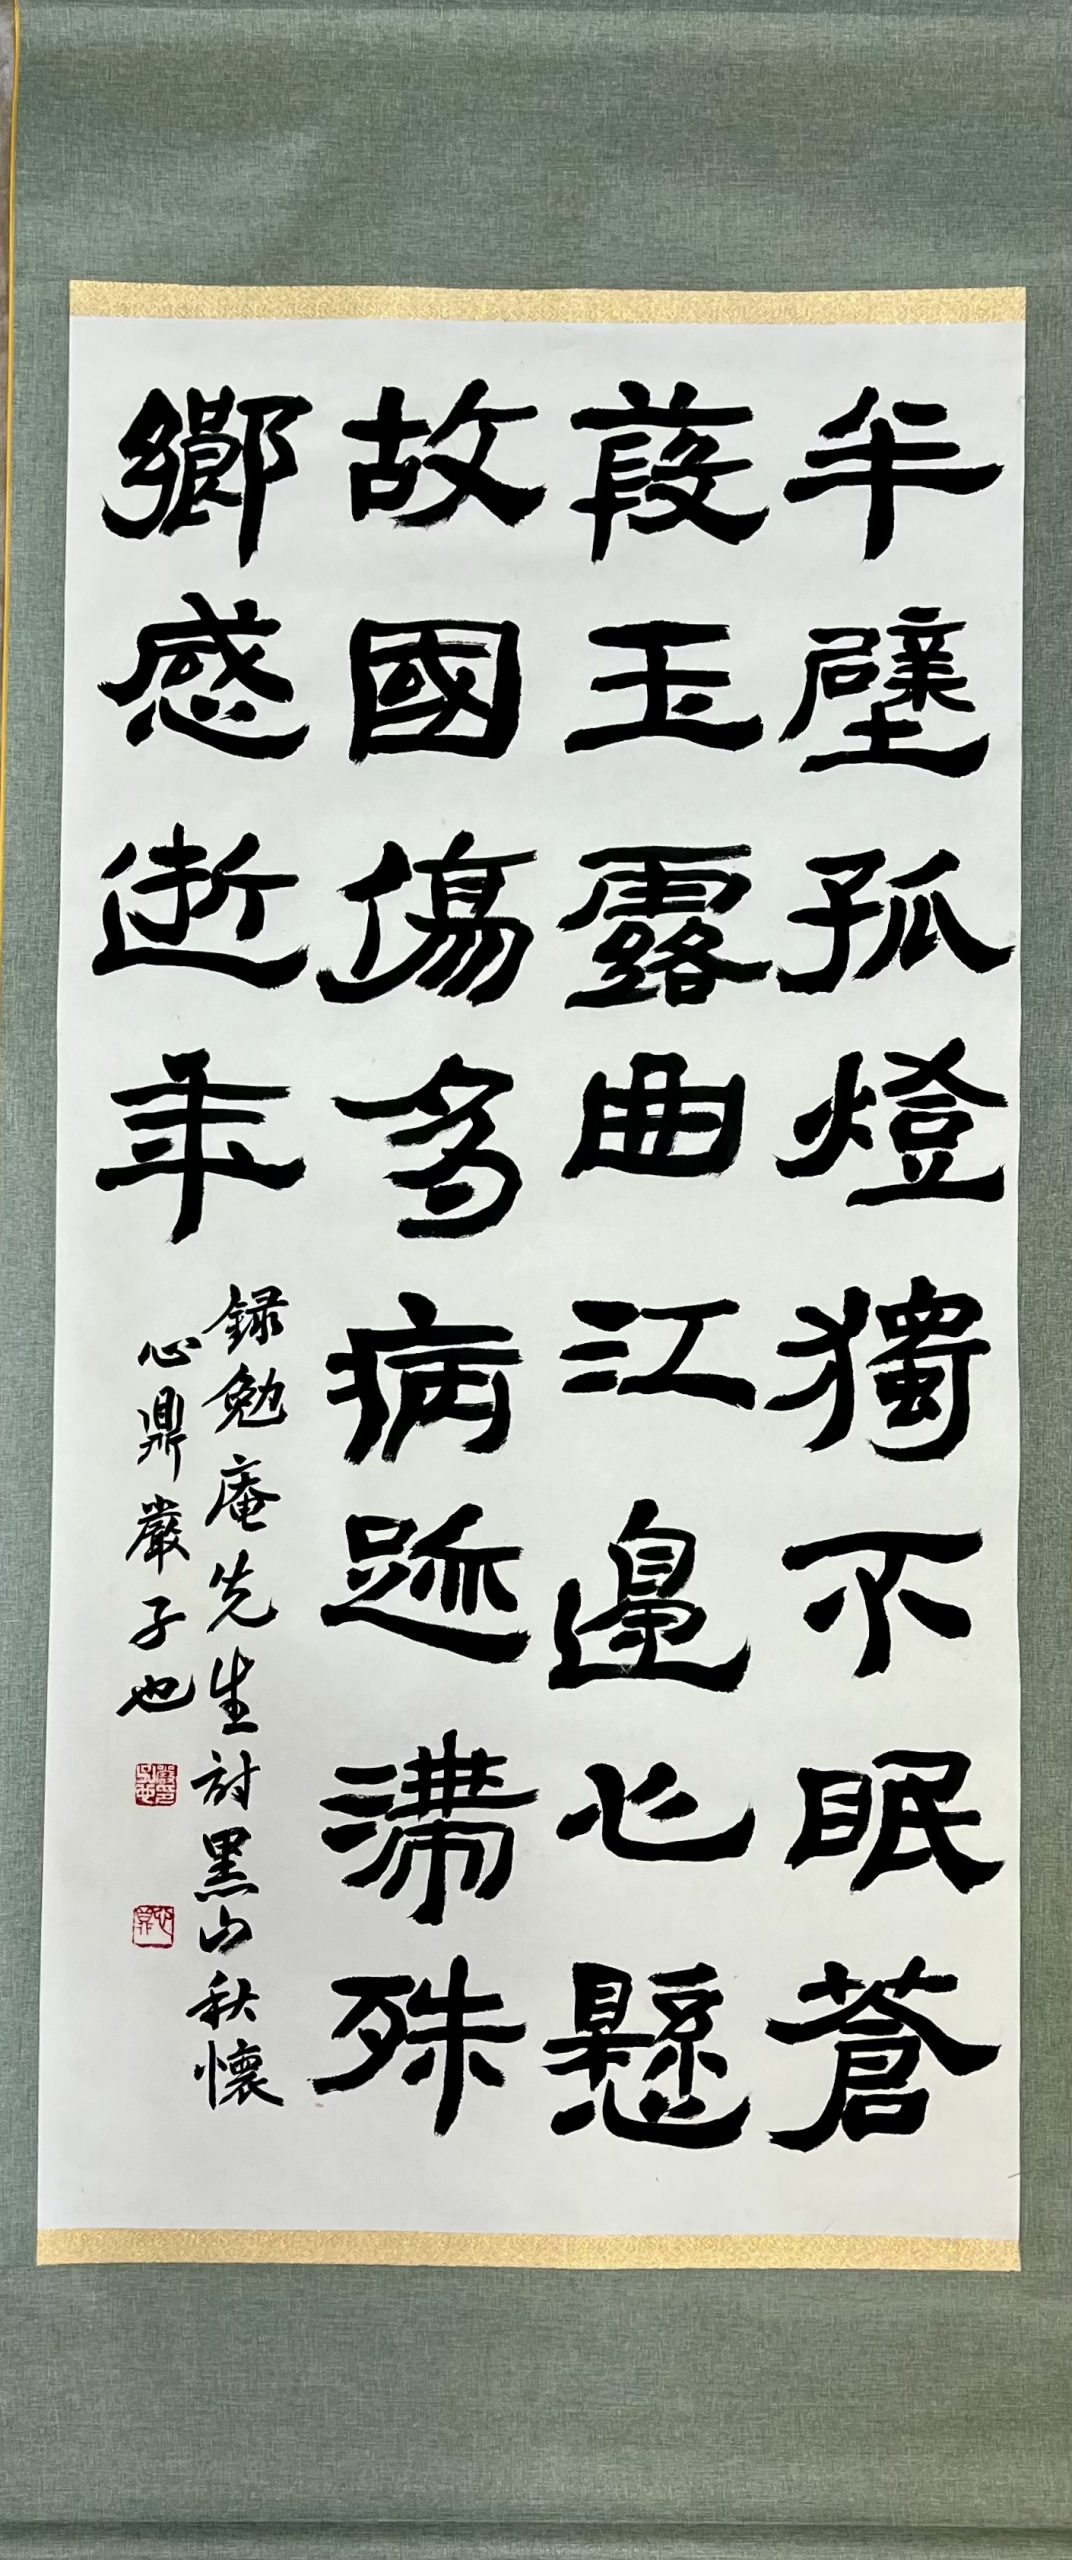 半壁孤燈獨不眠蒼
葭玉露曲江邊心懸
故國傷多病跡滯殊
鄉感逝年
録勉庵先生討黑山秋懷
心鼎嚴子也